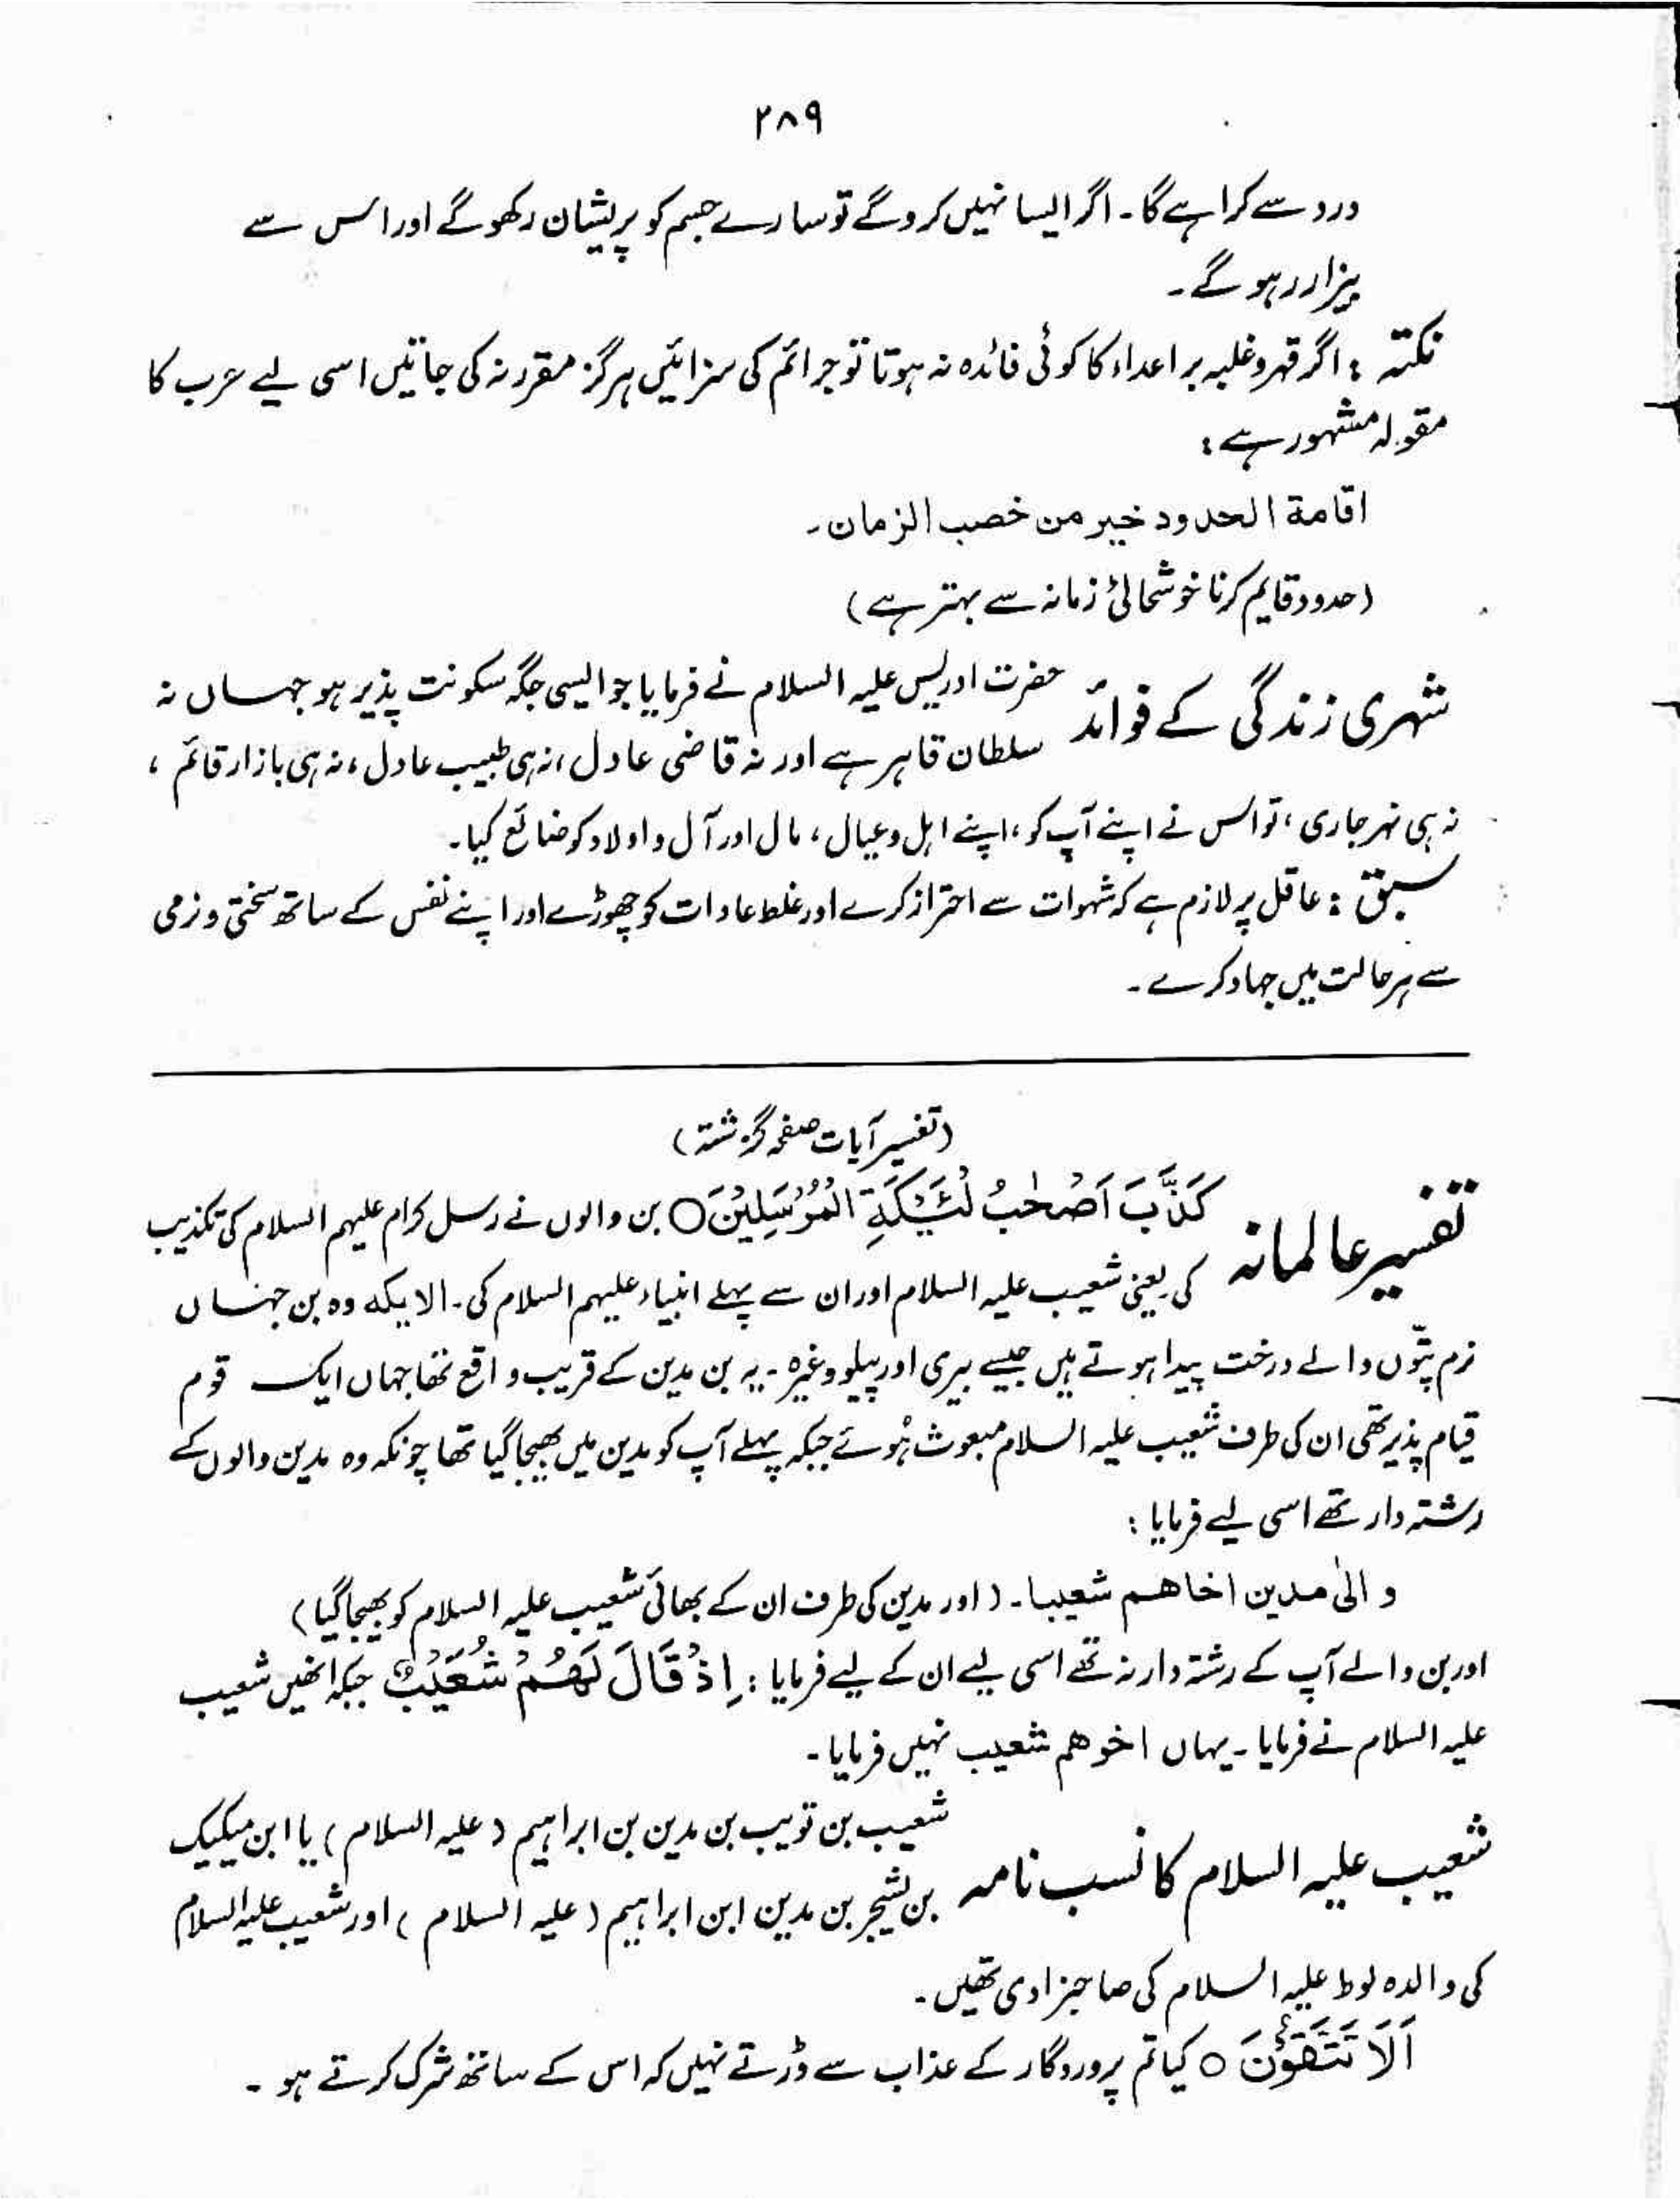 ۲۸۹
درد سے کراہے گا۔ اگر ایسا نہیں کرو گے تو سارے جسم کو پریشان رکھو گے اور اس سے
بیزار رہو گے۔
نکتہ : اگر قہر و غلبہ بر اعداء کا کوئی فائدہ نہ ہوتا تو جرائم کی سزائیں ہرگز مقرر نہ کی جاتیں اسی لیے عرب کا
مقولہ مشہور ہے :
اقامة الحدود خير من خصب الزمان۔
(حدود قایم کرنا خوشحالئ زمانہ سے بہتر ہے)
شہری زندگی کے فوائد حضرت ادریس علیہ السلام نے فرمایا جو ایسی جگہ سکونت پذیر ہو جہاں نہ
سلطان قاہر ہے اور نہ قاضی عادل ، نہ ہی طبیب عادل ، نہ ہی بازار قائم ،
نہ ہی نہر جاری ، تو اس نے اپنے آپ کو ، اپنے اہل و عیال ، مال اور آل و اولاد کو ضائع کیا۔
سبق : عاقل پر لازم ہے کہ شہوات سے احتراز کرے اور غلط عادات کو چھوڑے اور اپنے نفس کے ساتھ سختی و نرمی
سے ہر حالت میں جہاد کرے۔
(تفسیر آیات صفحہ گزشتہ)
تفسیر عالمانہ کَذَّبَ اَصْحٰبُ لْئَيْكَةِ الْمُرْسَلِيْنَ○ بن والوں نے رسل کرام علیہم السلام کی تکذیب
کی یعنی شعیب علیہ السلام اور ان سے پہلے انبیاء علیہم السلام کی۔ الایکه وہ بن جہاں
نرم پتّوں والے درخت پیدا ہوتے ہیں جیسے بیری اور پیلو وغیرہ۔ یہ بن مدین کے قریب واقع تھا جہاں ایک قوم
قیام پذیر تھی ان کی طرف شعیب علیہ السلام مبعوث ہُوئے جبکہ پہلے آپ کو مدین میں بھیجا گیا تھا چونکہ وہ مدین والوں کے
رشتہ دار تھے اسی لیے فرمایا :
و الیٰ مدین اخاھم شعیبا۔ (اور مدین کی طرف ان کے بھائی شعیب علیہ السلام کو بھیجا گیا)
اور بن والے آپ کے رشتہ دار نہ تھے اسی لیے ان کے لیے فرمایا : اِذْ قَالَ لَهُمْ شُعَيْبٌ جبکہ انھیں شعیب
علیہ السلام نے فرمایا۔ یہاں اخوھم شعیب نہیں فرمایا۔
شعیب علیہ السلام کا نسب نامہ شعیب بن تویب بن مدین بن ابراہیم (علیہ السلام) یا ابن میکیک
بن یشجر بن مدین ابن ابراہیم (علیہ السلام) اور شعیب علیہ السلام
کی والدہ لوط علیہ السلام کی صاحبزادی تھیں۔
اَلَا تَتَّقُوْنَ○ کیا تم پروردگار کے عذاب سے ڈرتے نہیں کہ اس کے ساتھ شرک کرتے ہو۔